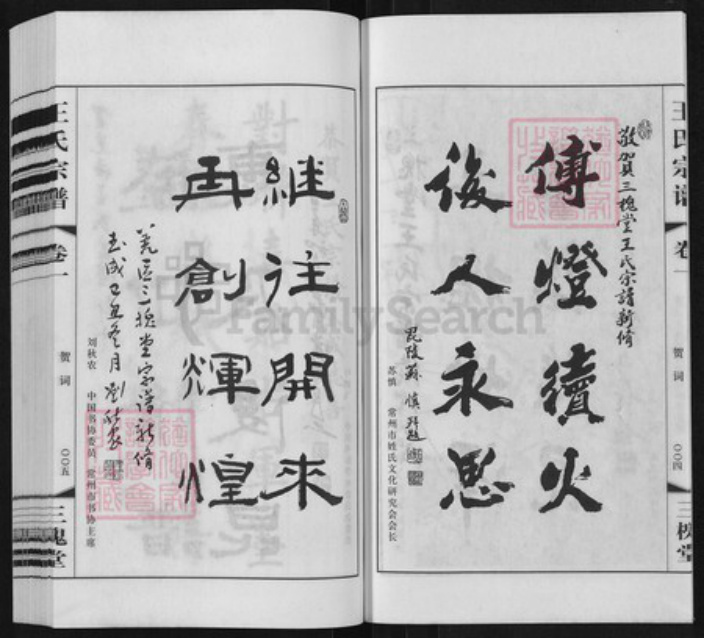 王氏宗谱
卷一
贺词
〇〇四
三槐堂
敬贺三槐堂王氏宗譜新脩
傅燈續火
後人永思
毘陵蘇慎拜題
苏慎 常州市姓氏文化研究会会长
继往開來
再創輝煌
三槐堂宗譜新脩
己丑冬月劉秋農
刘秋农 中国书协委员 常州市书协主席
王氏宗谱
卷一
贺词
〇〇五
三槐堂
FamilySearch